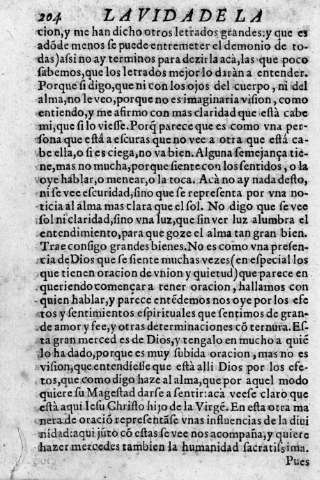 204 LA VIDA DE LA
cion, y me han dicho otros letrados grandes: y que es
adõde menos se puede entremeter el demonio de to-
das) assi no ay terminos para dezirla acà, las que poco
sabemos, que los letrados mejor lo daràn a entender.
Porque si digo, que ni con los ojos del cuerpo, ni del
alma, no le veo, porque no es imaginaria vision, como
entiendo, y me afirmo con mas claridad que està cabe
mi, que si lo viesse. Porq̃ parece que es como vna per-
sona que està a escuras que no vee a otra que està ca-
be ella, o si es ciega, no va bien. Alguna semejança tie-
ne, mas no mucha, porque siente con los sentidos, o la
oye hablar, o menear, o la toca. Acà no ay nada desto,
ni se vee escuridad, sino que se representa por vna no-
ticia al alma mas clara que el sol. No digo que se vee
sol ni claridad, sino vna luz, que sin ver luz alumbra el
entendimiento, para que goze el alma tan gran bien.
Trae consigo grandes bienes. No es como vna presen-
cia de Dios que se siente muchas vezes (en especial los
que tienen oracion de vnion y quietud) que parece en
queriendo començar a tener oracion, hallamos con
quien hablar, y parece entẽdemos nos oye por los efe-
tos y sentimientos espirituales que sentimos de gran-
de amor y fee, y otras determinaciones cõ ternura. Es-
ta gran merced es de Dios, y tengalo en mucho a quiẽ
lo ha dado, porque es muy subida oracion, mas no es
vision, que entendiesse que està alli Dios por los efe-
tos, que como digo haze al alma, que por aquel modo
quiere su Magestad darse a sentir: acà veese claro que
està aqui Iesu Christo hijo de la Virgẽ. En esta otra ma
nera de oraciõ representãse vnas influencias de la diui
nidad: aqui jũto cõ estas se vee nos acompaña, y quiere
hazer mercedes tambien la humanidad sacratissima.
Pues